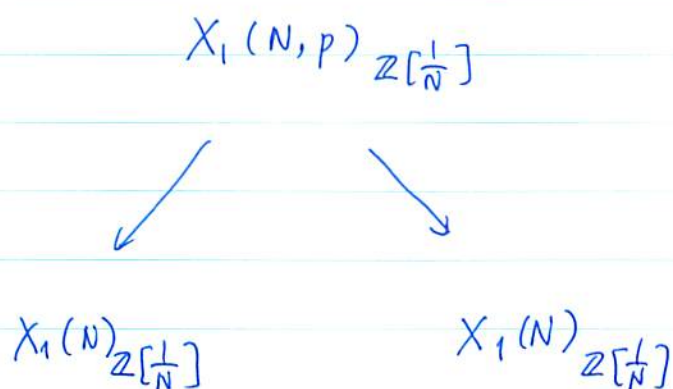 X₁(N,p) ℤ[1/N]
X₁(N) ℤ[1/N] X₁(N) ℤ[1/N]